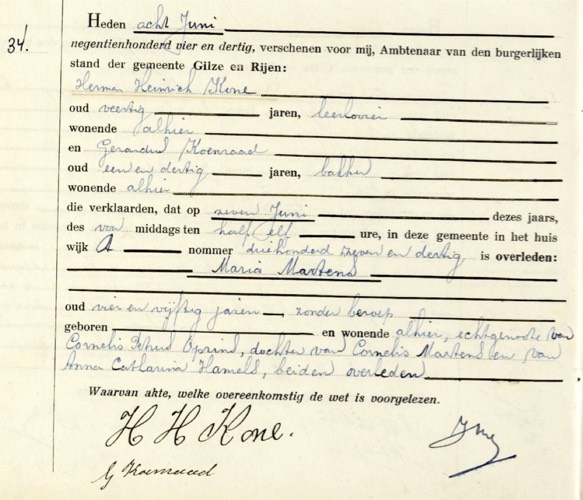 34.
Heden acht Juni
negentienhonderd vier en dertig, verschenen voor mij, Ambtenaar van den burgerlijken
stand der gemeente Gilze en Rijen:
Herman Heinrich Kone
oud veertig jaren, leerlooier
wonende alhier
en Gerardus Koenraad
oud een en dertig jaren, bakker
wonende alhier
die verklaarden, dat op zeven Juni dezes jaars,
des voor middags ten half elf ure, in deze gemeente in het huis
wijk A nommer driehonderd zeven en dertig is overleden:
Maria Martens
oud vier en vijftig jaren, zonder beroep
geboren en wonende alhier, echtgenoote van
Cornelis Oprins, dochter van Cornelis Martens en van
Anna Catharina Hamels, beiden overleden
Waarvan akte, welke overeenkomstig de wet is voorgelezen.
H H Kone.
G Koenraad